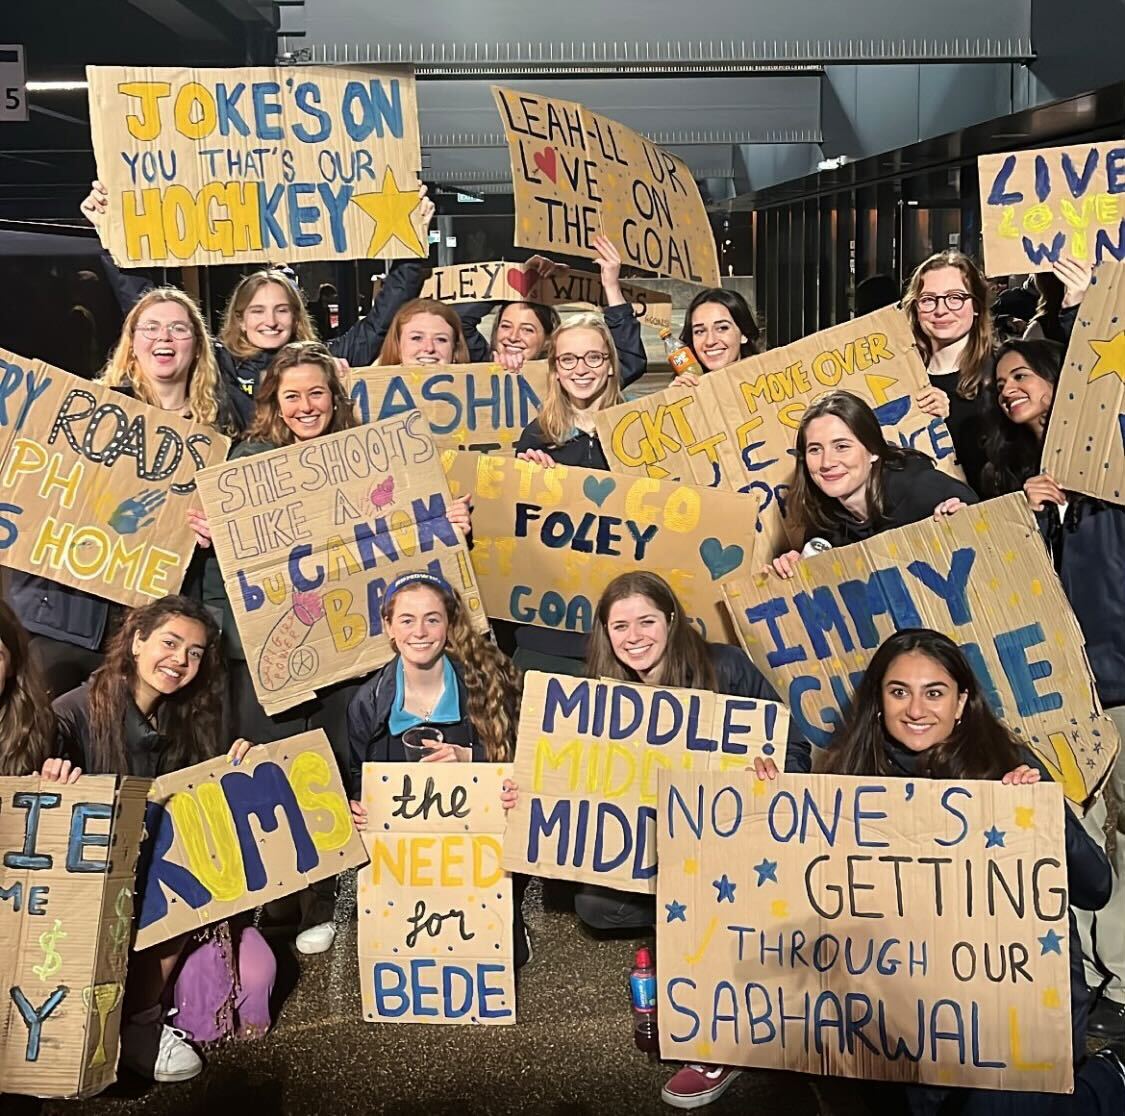 5
JOKE'S ON
YOU THAT'S OUR
HOGHKEY
LEAH-LL UR
LOVE ON
THE GOAL
LLEY WILLS
LIVE
LOVE
WIN
ROADS
HOME
MASHIN
GKT
MOVE OVER
SHE SHOOTS
LIKE A
bu CANON
BA
LETS GO
FOLEY
GET SOME
GOA
IMMY
GI
IE
ME
$
$
Y
RUMS
the
NEED
for
BEDE
MIDDLE!
MIDDLE
MIDD
NO ONE'S
GETTING
THROUGH OUR
SABHARWALL